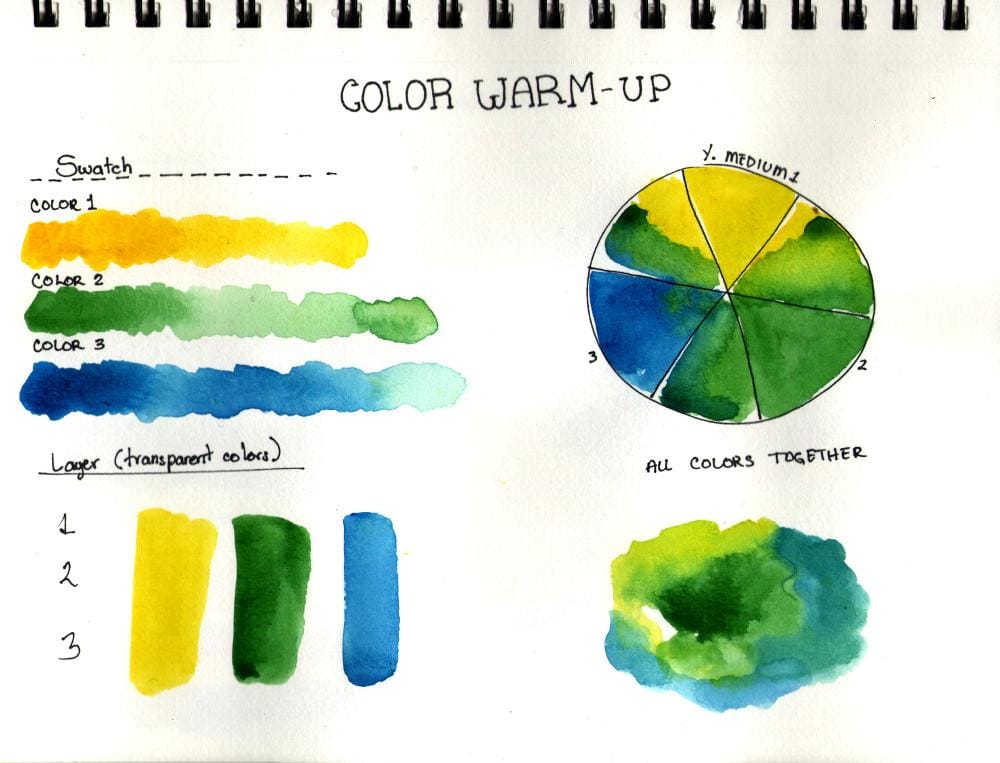 COLOR WARM-UP
Swatch
COLOR 1
COLOR 2
COLOR 3
Y. MEDIUM 1
3
2
Layer (transparent colors)
1
2
3
ALL COLORS TOGETHER